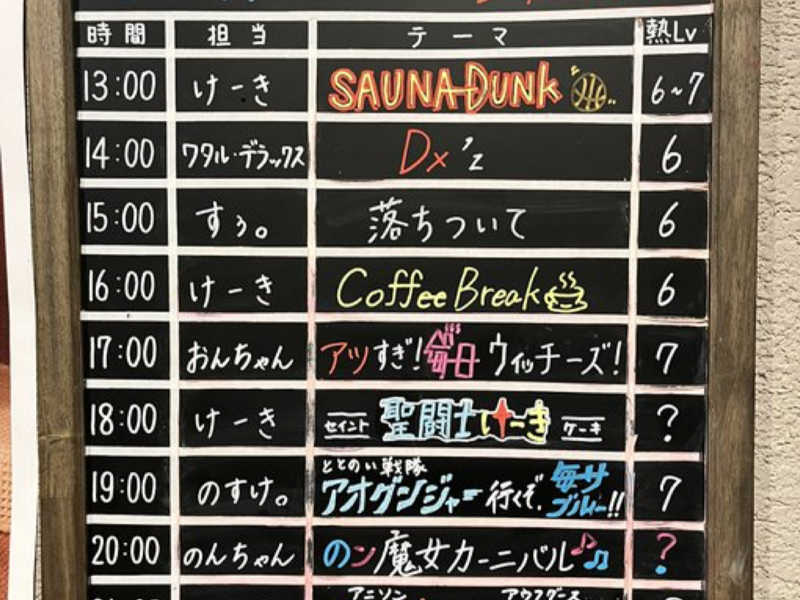 時間 担当 テーマ 熱Lv
13:00 けーき SAUNA DUNK 6~7
14:00 ワタル・デラックス Dx'z 6
15:00 すぅ。 落ちついて 6
16:00 けーき Coffee Break 6
17:00 おんちゃん アツすぎ!毎日ウィッチーズ! 7
18:00 けーき セイント 聖闘士けーき ケーキ ?
ととのい戦隊
19:00 のすけ。 アオグンジャー行くぞ、毎サブルー!! 7
20:00 のんちゃん のン魔女カーニバル ?
アニソン